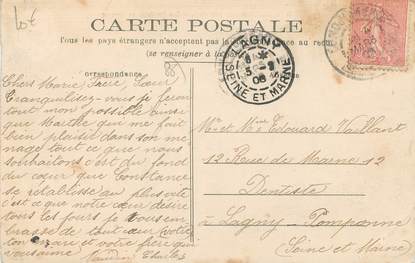 Lot
CARTE POSTALE
Tous les pays étrangers n'acceptent pas la
au recto
(se renseigner à la
correspondance
LAGNY
SEINE ET MARNE
Chers Marie, Frère, Sœur
Tranquilisez-vous je ferai
tout mon possible ainsi
que Marthe qui me fait
bien plaisir dans son me
nage tout ce que nous
souhaitons c'est du fond
du cœur que Constance
se rétablisse au plus vite
c'est ce que notre cœur désire
tous les jours je vous em
brasse de tout cœur votre
et votre frère qui
vous aime
Charles
Mr et Mme Edouard Vaillant
12 Rue de Marne 12
Dentiste
à Lagny-Pomponne
(Seine et Marne)